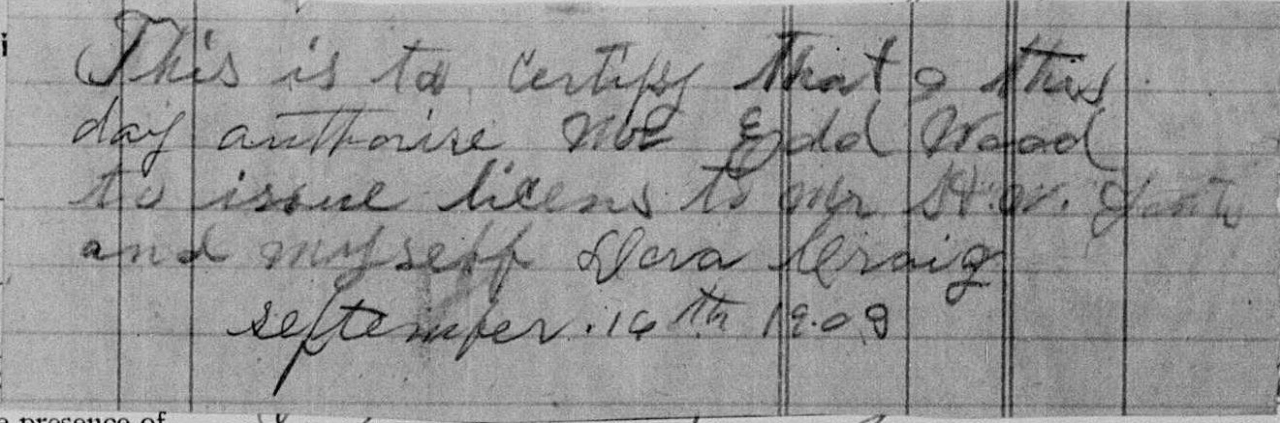 This is to certify that I this
day authorise Mr Edd Wood
to issue licens to Mr H. W.
and myself Dora Craig
september. 16th 1909
presence of